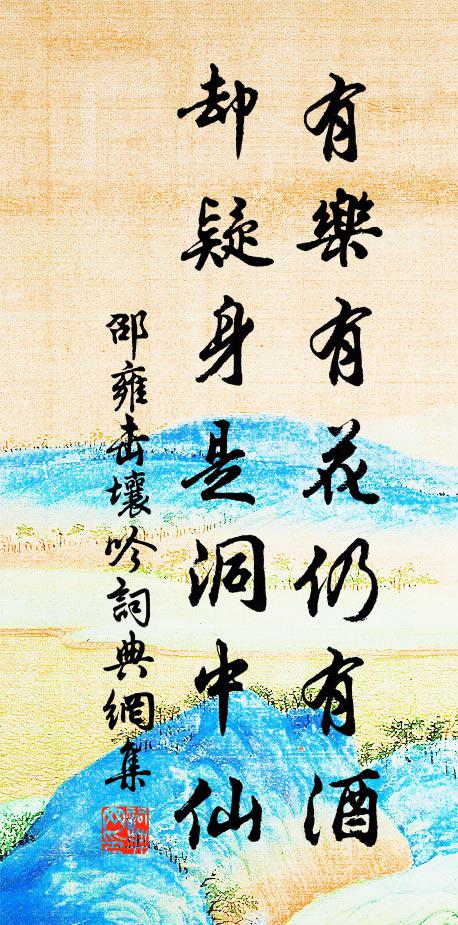 有樂有花仍有酒
却疑身是洞中仙
邵雍击壤吟詞典網集